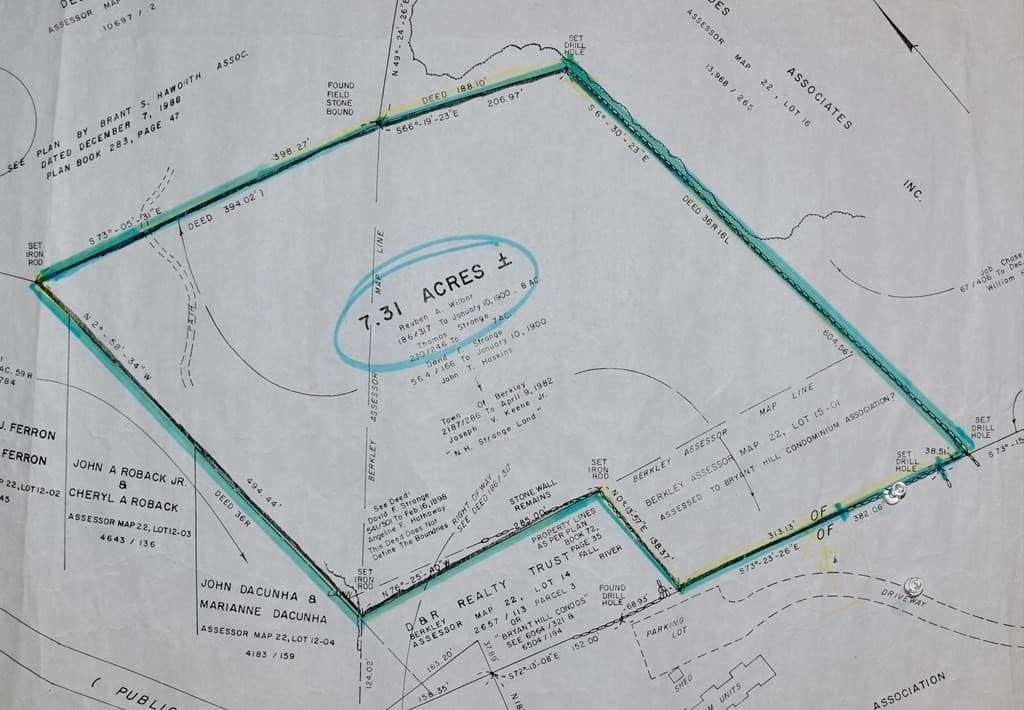 ASSESSOR MAP
10697 / 2
SEE PLAN BY BRANT S. HAWORTH ASSOC.
DATED DECEMBER 7, 1988
PLAN BOOK 283, PAGE 47
N 49°-24'-26"E
FOUND
FIELD
STONE
BOUND
SET
DRILL
HOLE
DES
ASSESSOR MAP 22, LOT 16
13,968 / 265
ASSOCIATES
INC.
DEED 188.10'
206.97'
S66°-19'-23"E
398.27'
DEED 394.02'
S73°-05'-31"E
SET
IRON
ROD
S6°-30'-23"E
DEED 36R16L
604.56'
PATH
BERKLEY ASSESSOR MAP LINE
7.31 ACRES ±
Reuben A. Wilbor
186/317 To January 10, 1900 - 8 AC.
Thomas Strange 7 AC.
230/246 To
David F. Strange
564 / 166 To January 10, 1900
John T. Hoskins
Town Of Berkley
2187/286 To April 9, 1982
Joseph V. Keene Jr.
"N.H. Strange Land"
Job Chase
67/406 To Dec.
William
N 2°-58'-34"W
494.44'
DEED 36R
AC. 59 R
784
J. FERRON
FERRON
22, LOT 12-02
45
JOHN A ROBACK JR.
&
CHERYL A ROBACK
ASSESSOR MAP 22, LOT 12-03
4643 / 136
JOHN DACUNHA &
MARIANNE DACUNHA
ASSESSOR MAP 22, LOT 12-04
4183 / 159
See Deed
David F. Strange
541/501 To Feb 16, 1898
Angeline F. Hathaway
This Deed Does Not
Define The Boundries
RIGHT OF WAY
SEE DEED 186/317
STONE WALL
REMAINS
285.00'
N76°-25'-40"W
SET
IRON
ROD
SET
IRON
ROD
BERKLEY ASSESSOR MAP LINE
BERKLEY ASSESSOR MAP 22, LOT 15-01
ASSESSED TO BRYANT HILL CONDOMINIUM ASSOCIATION?
SET
DRILL
HOLE
SET
DRILL
HOLE
38.51'
S73°-15
382.06'
OF
OF
313.13'
S73°-23'-26"E
138.37'
PROPERTY LINES
AS PER PLAN
BOOK 72,
PAGE 35
FALL RIVER
D&R REALTY TRUST
BERKLEY
ASSESSOR MAP 22, LOT 14
2657 / 113 PARCEL 3
OR
"BRYANT HILL CONDOS"
SEE 6064/321 &
6504/194
FOUND
DRILL
HOLE
68.93'
PARKING
LOT
DRIVEWAY
SHED
UNITS
ASSOCIATION
152.00'
S72°-13'-08"E
163.20'
158.35'
37.89'
124.02'
N18°
( PUBLIC